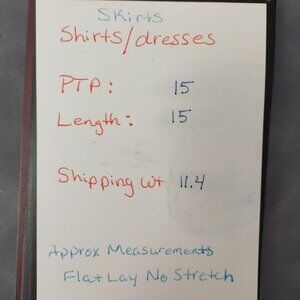 Skirts
Shirts/dresses
PTP: 15
Length: 15
Shipping wt 11.4
Approx Measurements
Flat Lay No Stretch